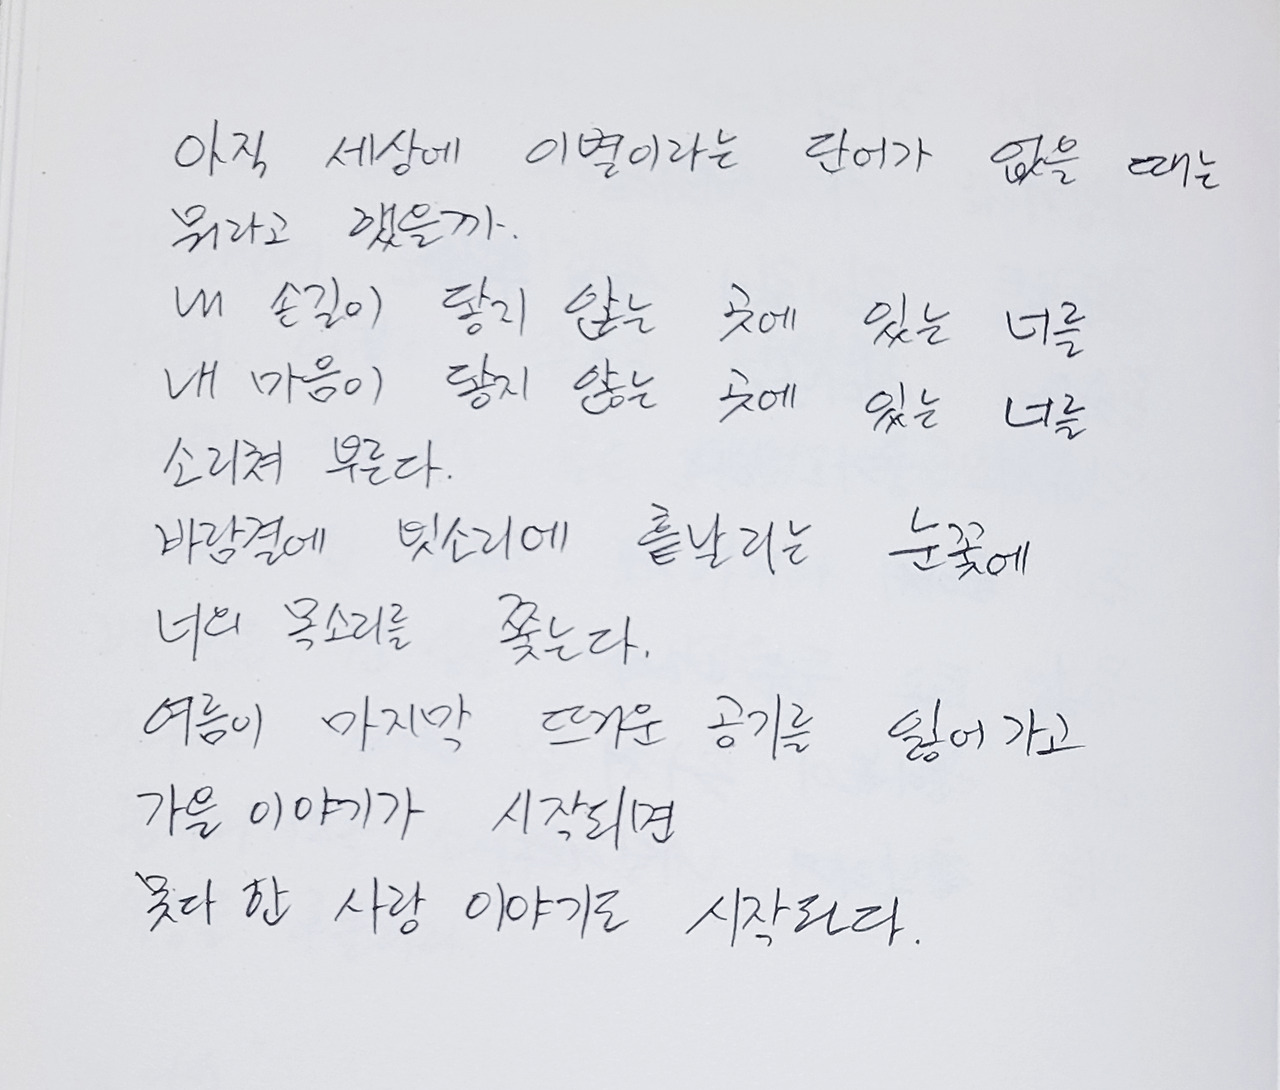 아직 세상에 이별이라는 단어가 없을 때는
뭐라고 했을까.
내 손길이 닿지 않는 곳에 있는 너를
내 마음이 닿지 않는 곳에 있는 너를
소리쳐 부른다.
바람결에 빗소리에 흩날리는 눈꽃에
너의 목소리를 쫓는다.
여름이 마지막 뜨거운 공기를 잃어가고
가을 이야기가 시작되면
못다 한 사랑 이야기도 시작된다.